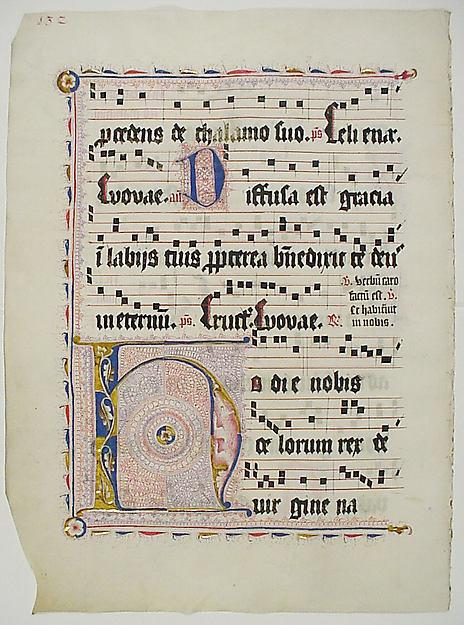 132
pcedens de thalamo suo. ps Celi enar.
Evovae. an Diffusa est gracia
ī labijs tuis ppterea bn̄edixit te deu
in eternū. ps. Eruct. Evovae. R.
v. Verbū caro
factū est. v.
Et habitāuit
in nobis.
Hodie nobis
ce lorum rex de
uir gine na